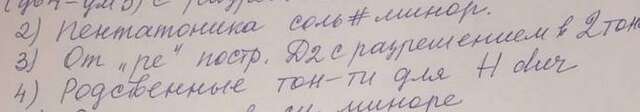 2) Пентатоника соль# минор.
3) От „ре" постр. Д2 с разрешением в 2 тон
4) Родственные тон-ти для H dur
миноре